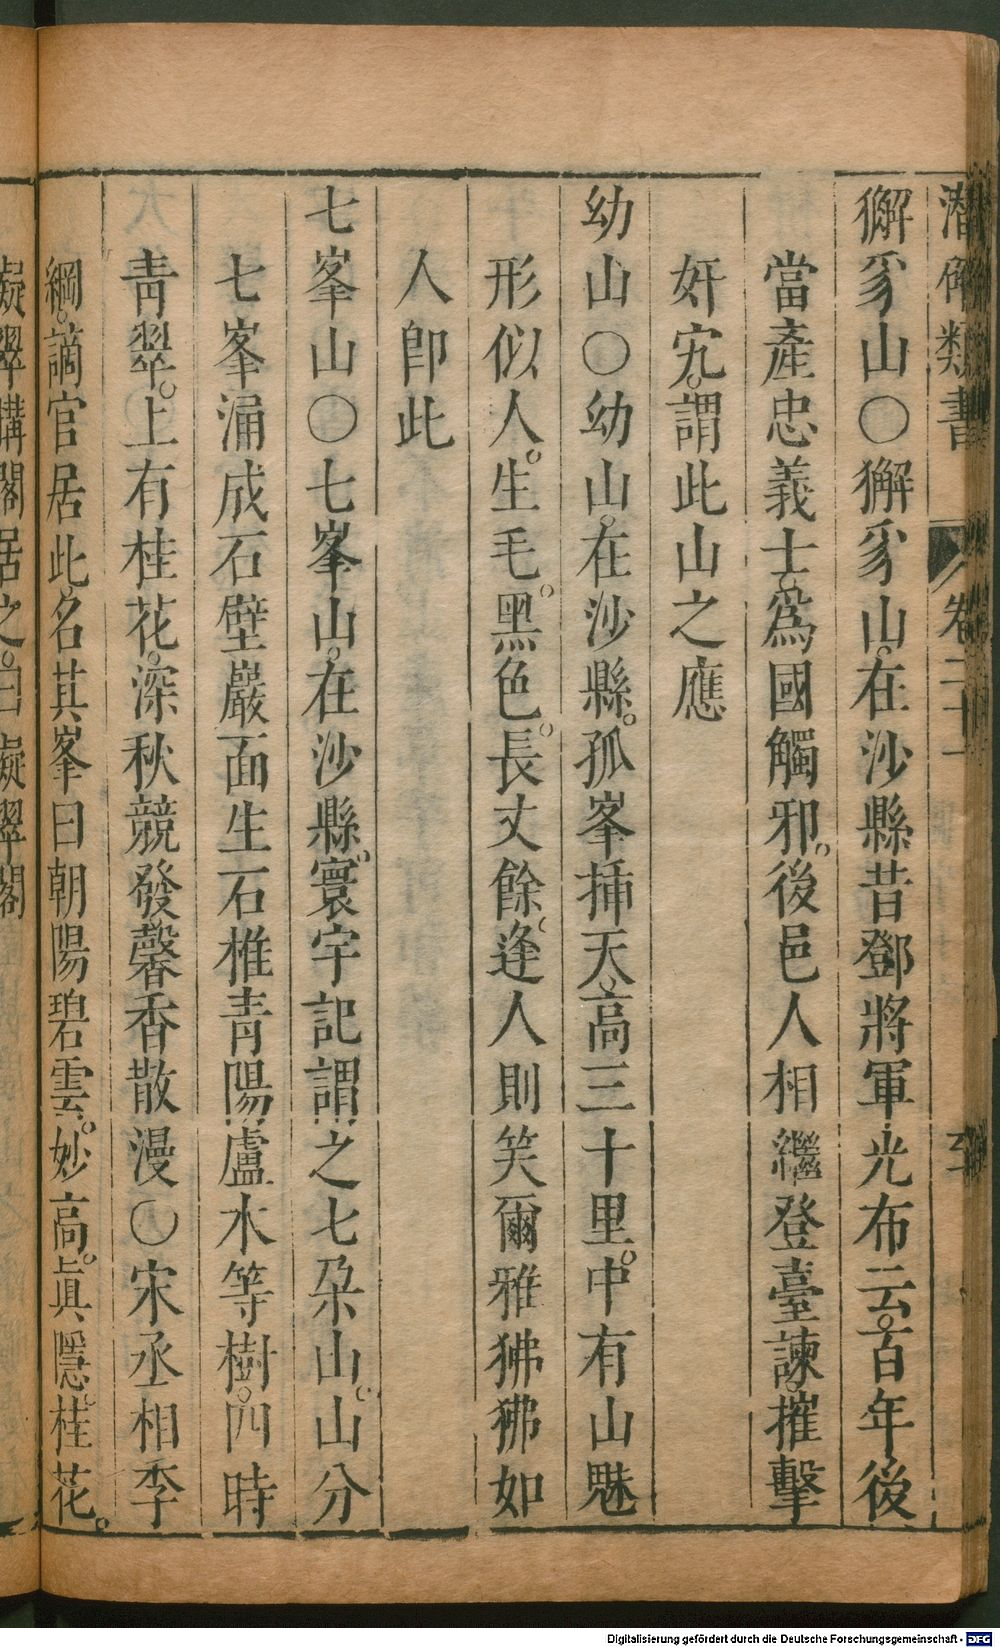 潛確類書 卷二十一
獬豸山○獬豸山。在沙縣昔鄧將軍光布云。百年後
當產忠義士。爲國觸邪。後邑人相繼登臺諫。摧擊
奸宄。謂此山之應
幼山○幼山。在沙縣。孤峯揷天。高三十里。中有山魅
形似人。生毛。黑色。長丈餘。逢人則笑爾雅狒狒如
人卽此
七峯山○七峯山。在沙縣。寰宇記謂之七朶山。山分
七峯涌成石壁巖面生石椎青陽盧水等樹。四時
靑翠。上有桂花。深秋競發。馨香散漫○宋丞相李
綱。謫官居此。名其峯曰朝陽碧雲。妙高。眞隱。桂花。
凝翠構閣居之。曰凝翠閣
Digitalisierung gefördert durch die Deutsche Forschungsgemeinschaft - DFG